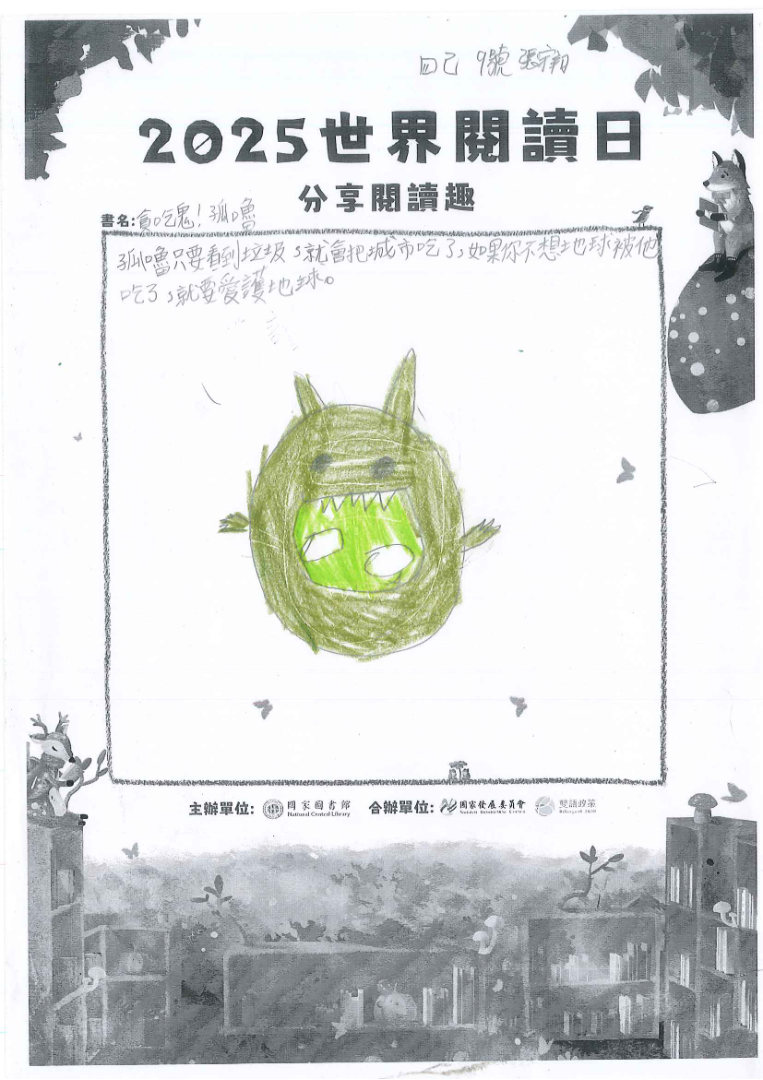 四己 9號 張宇翔
2025世界閱讀日
分享閱讀趣
書名:貪吃鬼!孤嚕
孤嚕只要看到垃圾,就會把城市吃了,如果你不想地球被他
吃了,就要愛護地球。
主辦單位: 國家圖書館 National Central Library 合辦單位: 國家發展委員會 National Development Council 雙語政策